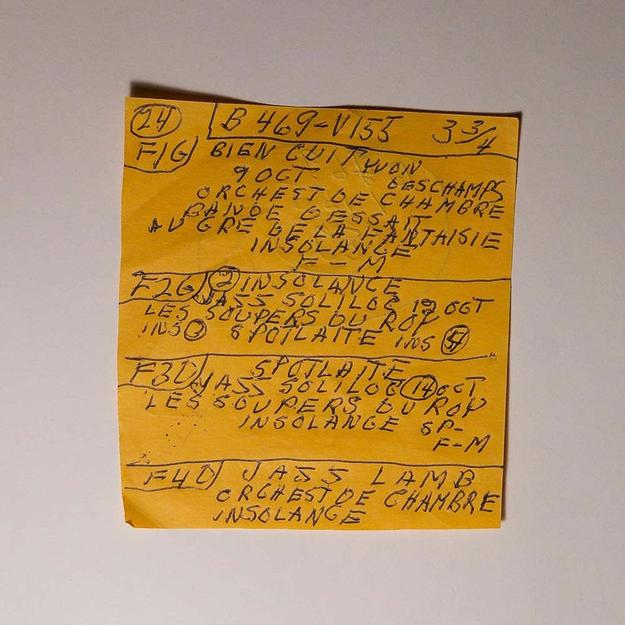 24 B 469-V155 3 3/4
F1G BIEN CUIT YVON
9 OCT DESCHAMPS
ORCHEST DE CHAMBRE
BANDE DESSAIT
AU GRE DE LA FANTAISIE
INSOLANGE
F-M
F2G 2 INSOLANGE
JASS SOLILOC 19 OCT
LES SOUPERS DU ROY
INS SPOTLAITE INS
F3D SPOTLAITE
JASS SOLILOC 14 OCT
LES SOUPERS DU ROY
INSOLANGE SP-
F-M
F4D JASS LAMB
ORCHEST DE CHAMBRE
INSOLANGE